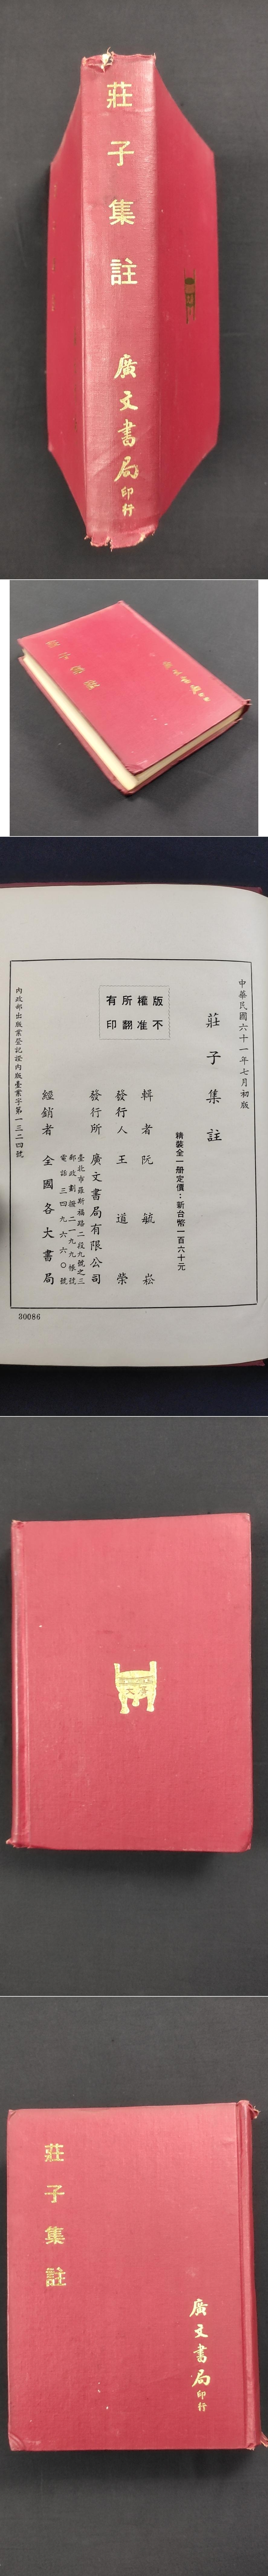 莊子集註
廣文書局印行
莊子集註
廣文書局印行
中華民國六十一年七月初版
莊子集註
精裝全一册定價：新台幣一百六十元
版權所有
不准翻印
輯者阮毓崧
發行人王道榮
發行所廣文書局有限公司
臺北市羅斯福路二段九號之三
郵政劃撥二一九九帳號
電話三四九六六〇號
經銷者全國各大書局
內政部出版業登記證內版臺業字第一三二四號
30086
莊子集註
廣文書局印行